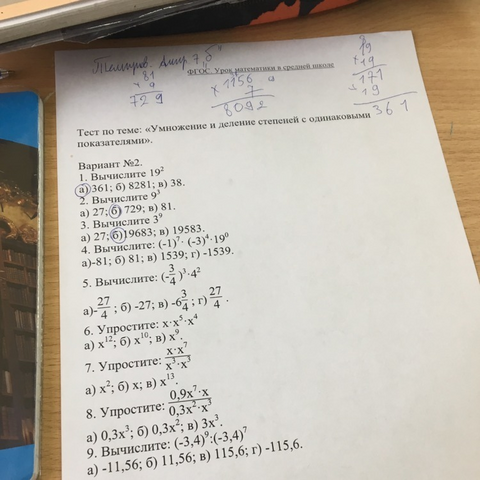 Темиров. Амир 7 "б"
ФГОС. Урок математики в средней школе
81
× 9
729
× 1156
7
8092
19
× 19
171
19
361
Тест по теме: «Умножение и деление степеней с одинаковыми
показателями».
Вариант №2.
1. Вычислите 19²
а) 361; б) 8281; в) 38.
2. Вычислите 9³
а) 27; б) 729; в) 81.
3. Вычислите 3⁹
а) 27; б) 19683; в) 19583.
4. Вычислите: (-1)⁷· (-3)⁴·19⁰
а)-81; б) 81; в) 1539; г) -1539.
5. Вычислите: (-3/4)³·4²
а)-27/4 ; б) -27; в) -6 3/4 ; г) 27/4 .
6. Упростите: x·x⁵·x⁴
а) x¹²; б) x¹⁰; в) x⁹.
7. Упростите: x·x⁷/x³·x³
а) x²; б) x; в) x¹³.
8. Упростите: 0,9x⁷·x/0,3x²·x³
а) 0,3x³; б) 0,3x²; в) 3x³.
9. Вычислите: (-3,4)⁹:(-3,4)⁷
а) -11,56; б) 11,56; в) 115,6; г) -115,6.